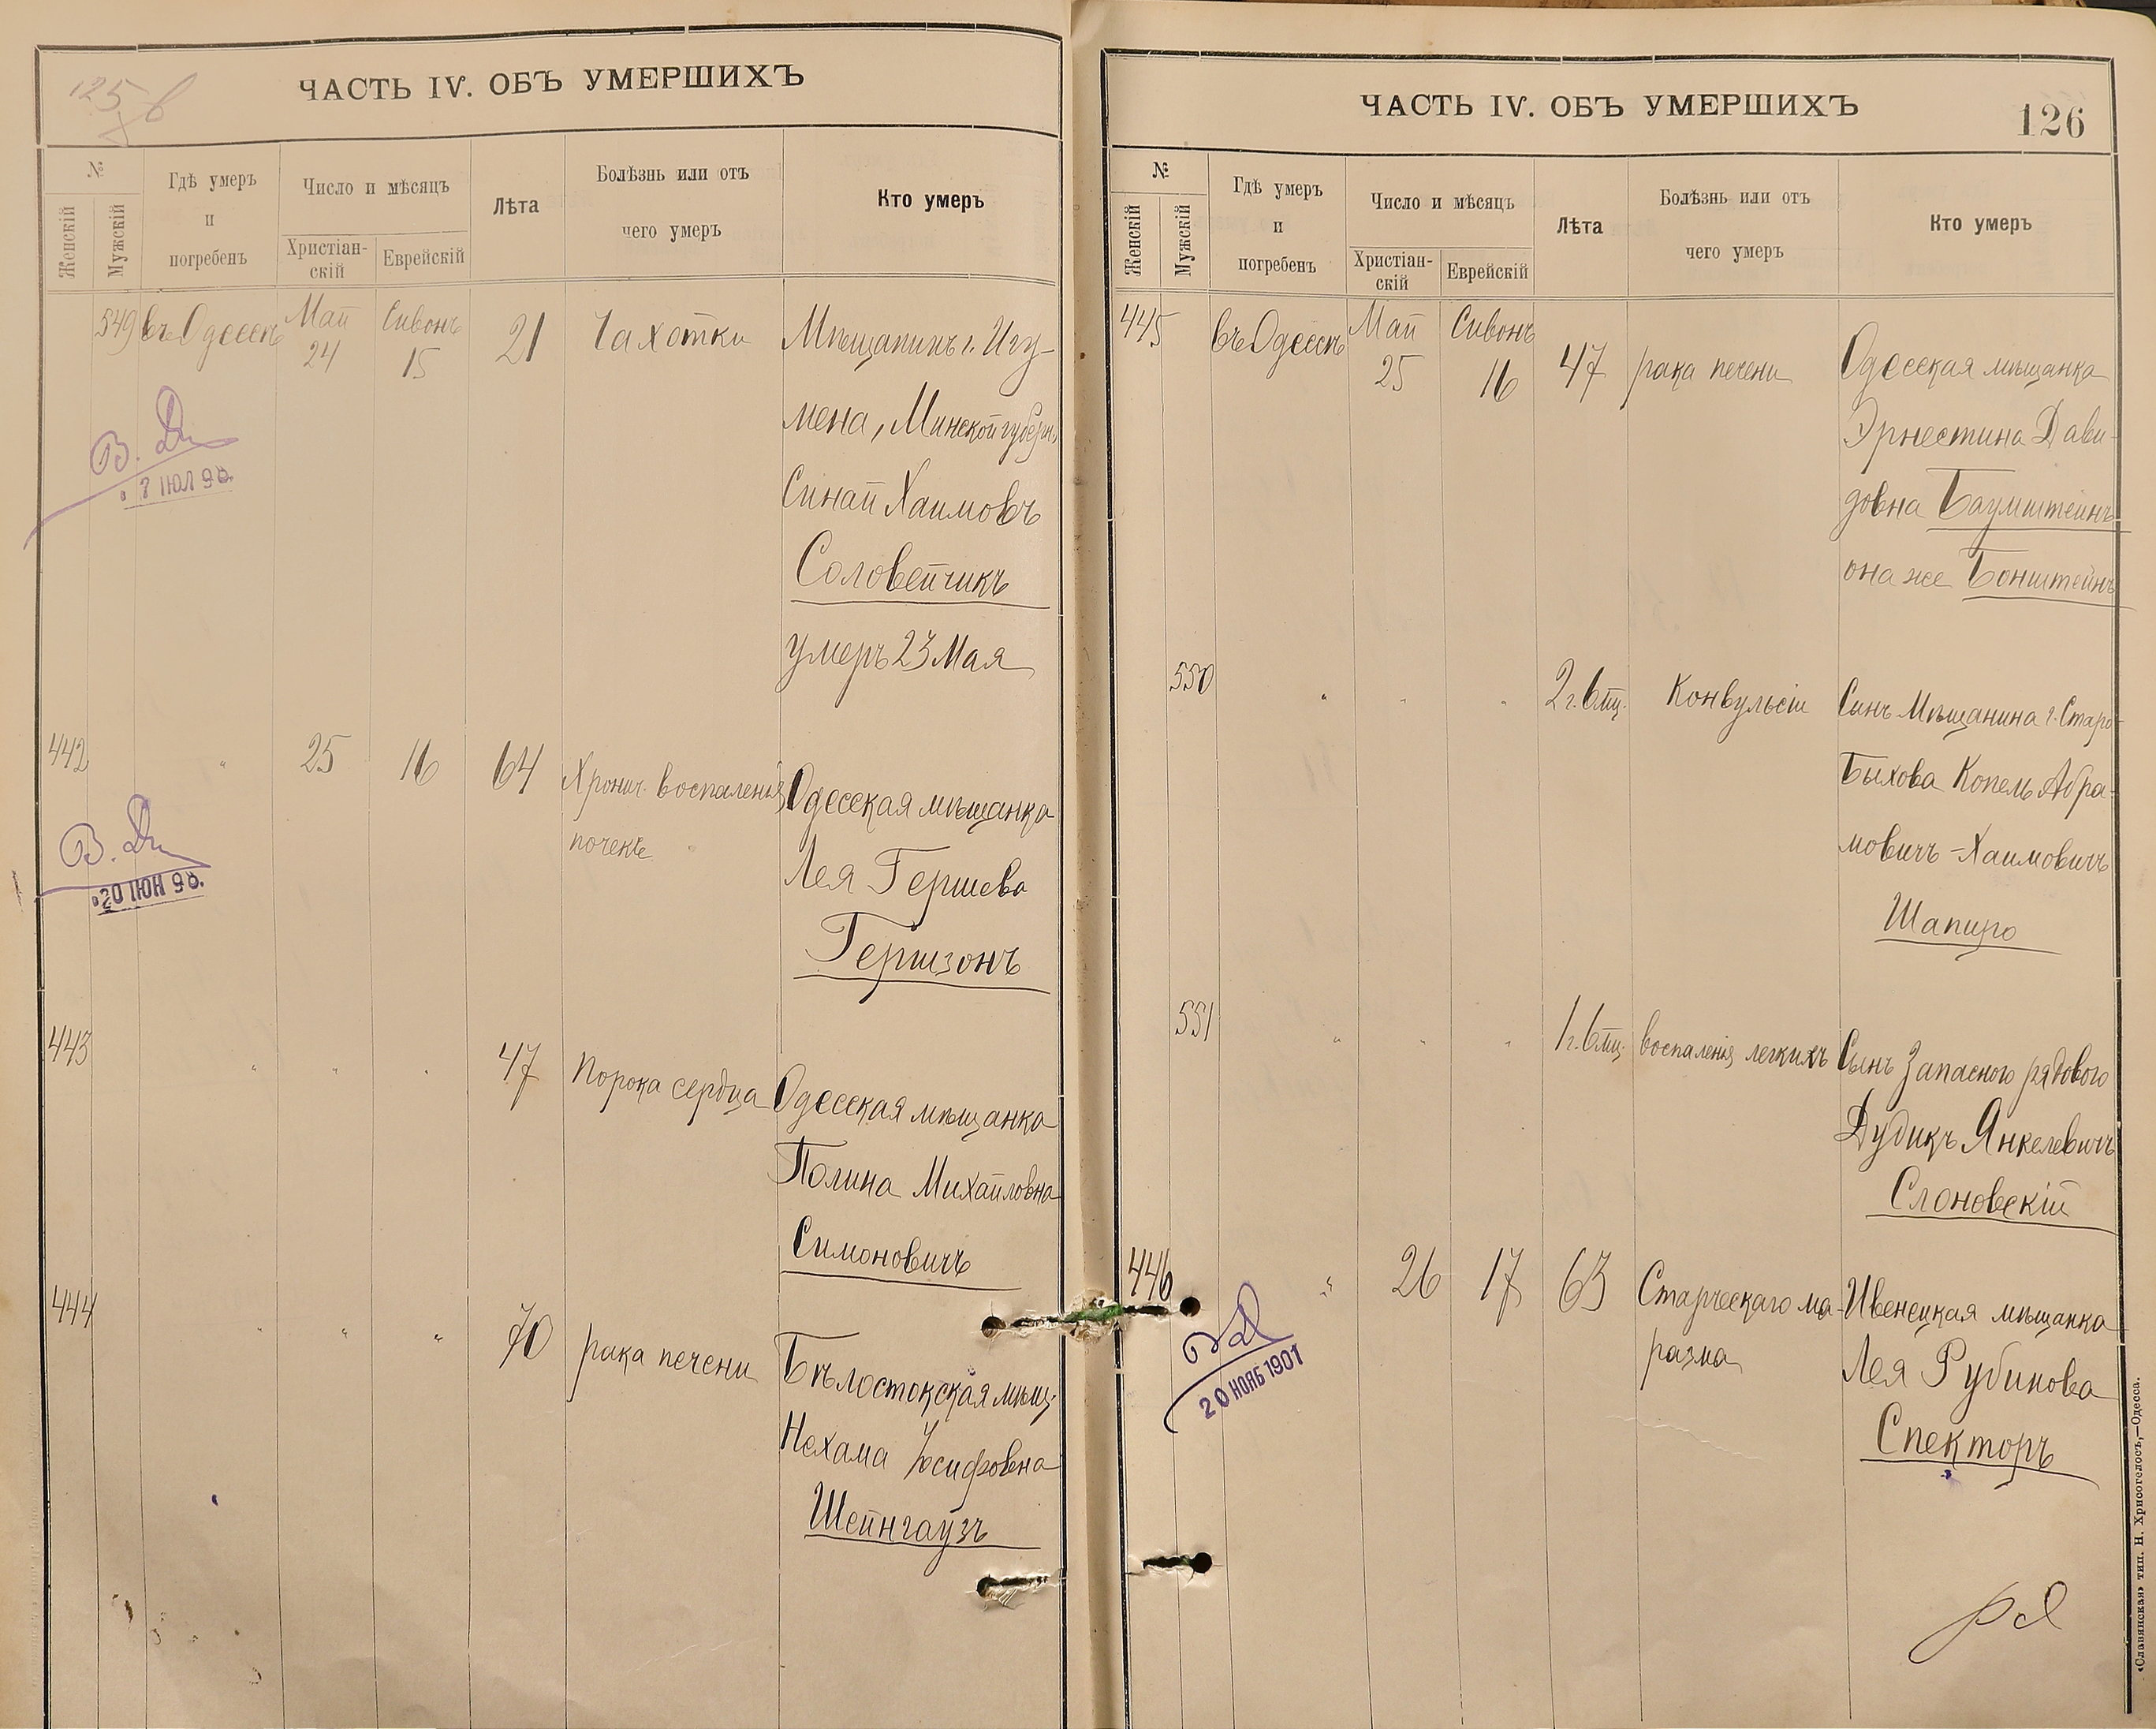 125
ЧАСТЬ IV. ОБЪ УМЕРШИХЪ
№
Женскій
Мужскій
Гдѣ умеръ
и
погребенъ
Число и мѣсяцъ
Христіан-
скій
Еврейскій
Лѣта
Болѣзнь или отъ
чего умеръ
Кто умеръ
549 въ Одессѣ Май Сивонъ 21 Чахотки Мѣщанинъ г. Игу-
24 15
мена, Минской губерн.
Синай Хаимовъ
Соловейчикъ
умеръ 23 Мая
В. Ди
7 ІЮЛ 96.
442 " 25 16 64 Хронич. воспаленія Одесская мѣщанка
почекъ
Лея Гершева
Гершзонъ
В. Ди
20 ІЮН 96.
443 " " " 47 Порока сердца Одесская мѣщанка
Полина Михайловна
Симоновичъ
444 " " " 70 рака печени Бѣлостокская мѣщ.
Нехама Іосифовна
Шейнгаузъ
ЧАСТЬ IV. ОБЪ УМЕРШИХЪ
126
№
Женскій
Мужскій
Гдѣ умеръ
и
погребенъ
Число и мѣсяцъ
Христіан-
скій
Еврейскій
Лѣта
Болѣзнь или отъ
чего умеръ
Кто умеръ
445 въ Одессѣ Май Сивонъ
25 16 47 рака печени Одесская мѣщанка
Эрнестина Дави-
довна Баумштейнъ
она же Бонштейнъ
550 " " " 2 г. 6 мц. Конвульсіи Сынъ Мѣщанина г. Старо-
Быхова Копель Абра-
мовичъ-Хаимовичъ
Шапиро
551 " " " 1 г. 6 мц. воспаленія легкихъ Сынъ Запасного рядового
Дудикъ Янкелевичъ
Слоновскій
446 " 26 17 63 Старческаго ма- Ивенецкая мѣщанка
разма
Лея Рубинова
Спекторъ
20 НОЯБ 1901
«Славянская» тип. Н. Хрисогелосъ,—Одесса.